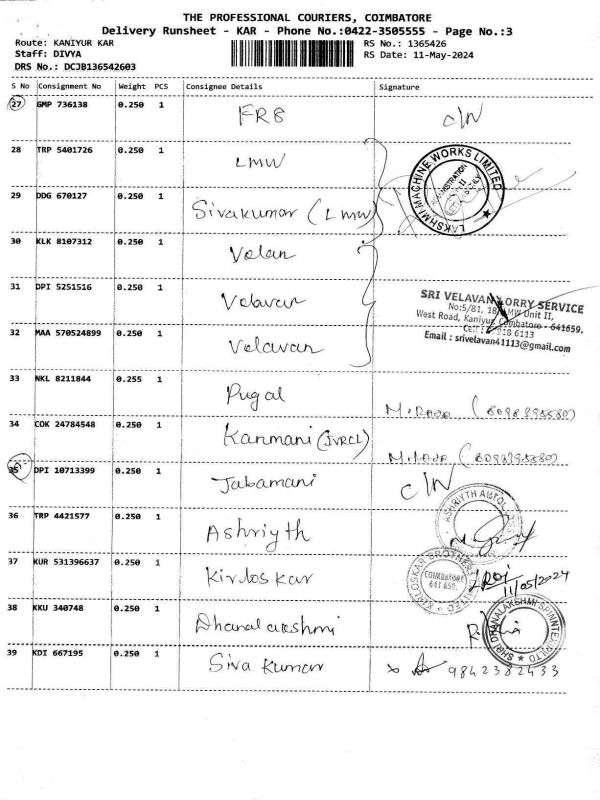 THE PROFESSIONAL COURIERS, COIMBATORE
Delivery Runsheet - KAR - Phone No.:0422-3505555 - Page No.:3
Route: KANIYUR KAR RS No.: 1365426
Staff: DIVYA RS Date: 11-May-2024
DRS No.: DCJB136542603
S No Consignment No Weight PCS Consignee Details Signature
27 GMP 736138 0.250 1 FRB C/N
28 TRP 5401726 0.250 1 LMW
LAKSHMI MACHINE WORKS LIMITED
29 DDG 670127 0.250 1 Sivakumar (LMW)
30 KLK 8107312 0.250 1 Velan
31 DPI 5251516 0.250 1 Velavan
SRI VELAVAN LORRY SERVICE
No:5/81, Unit II,
West Road, Kaniyur, Coimbatore - 641659.
Cell : 6113
Email : srivelavan41113@gmail.com
32 MAA 570524899 0.250 1 Velavan
33 NKL 8211844 0.255 1 Pugal
34 COK 24784548 0.250 1 Kanmani (IVRCL)
35 DPI 10713399 0.250 1 Jabamani C/N
36 TRP 4421577 0.250 1 Ashriyth
37 KUR 531396637 0.250 1 Kirloskar
KIRLOSKAR BROTHERS LIMITED
COIMBATORE
641 659.
11/05/2024
38 KKU 340748 0.250 1 Dhanalakshmi
SHRI DHANALAKSHMI SPINNTEX (P) LTD
39 KDI 667195 0.250 1 Siva Kumar 9842382433